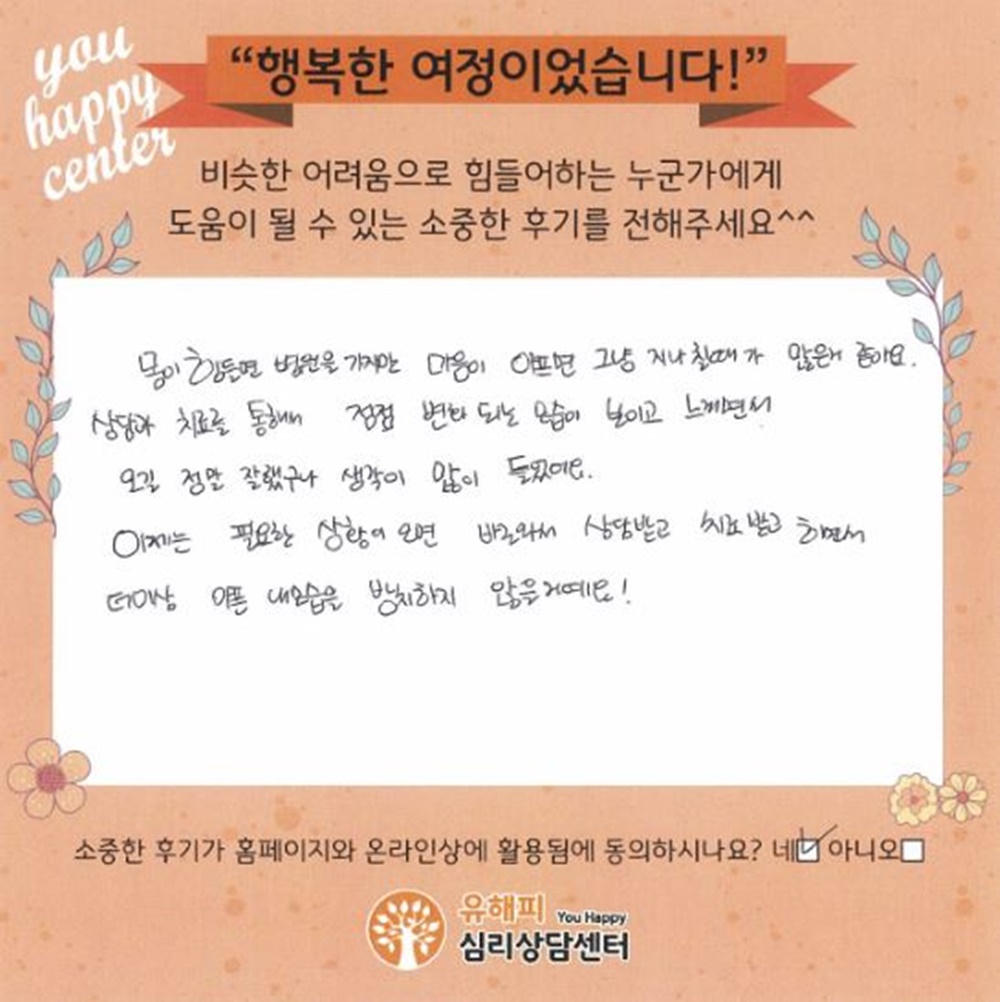 you
happy
center
“행복한 여정이었습니다!”
비슷한 어려움으로 힘들어하는 누군가에게
도움이 될 수 있는 소중한 후기를 전해주세요^^
몸이 힘든면 병원을 가지만 마음이 아프면 그냥 지나칠때가 많은거 같아요.
상담과 치료를 통해서 점점 변화 되는 모습이 보이고 느끼면서
오길 정말 잘했구나 생각이 많이 들었어요.
이제는 필요한 상황이 오면 바로와서 상담받고 치료받고 하면서
더이상 아픈 내모습을 방치하지 않을거예요!
소중한 후기가 홈페이지와 온라인상에 활용됨에 동의하시나요? 네☑ 아니오☐
유해피 You Happy
심리상담센터